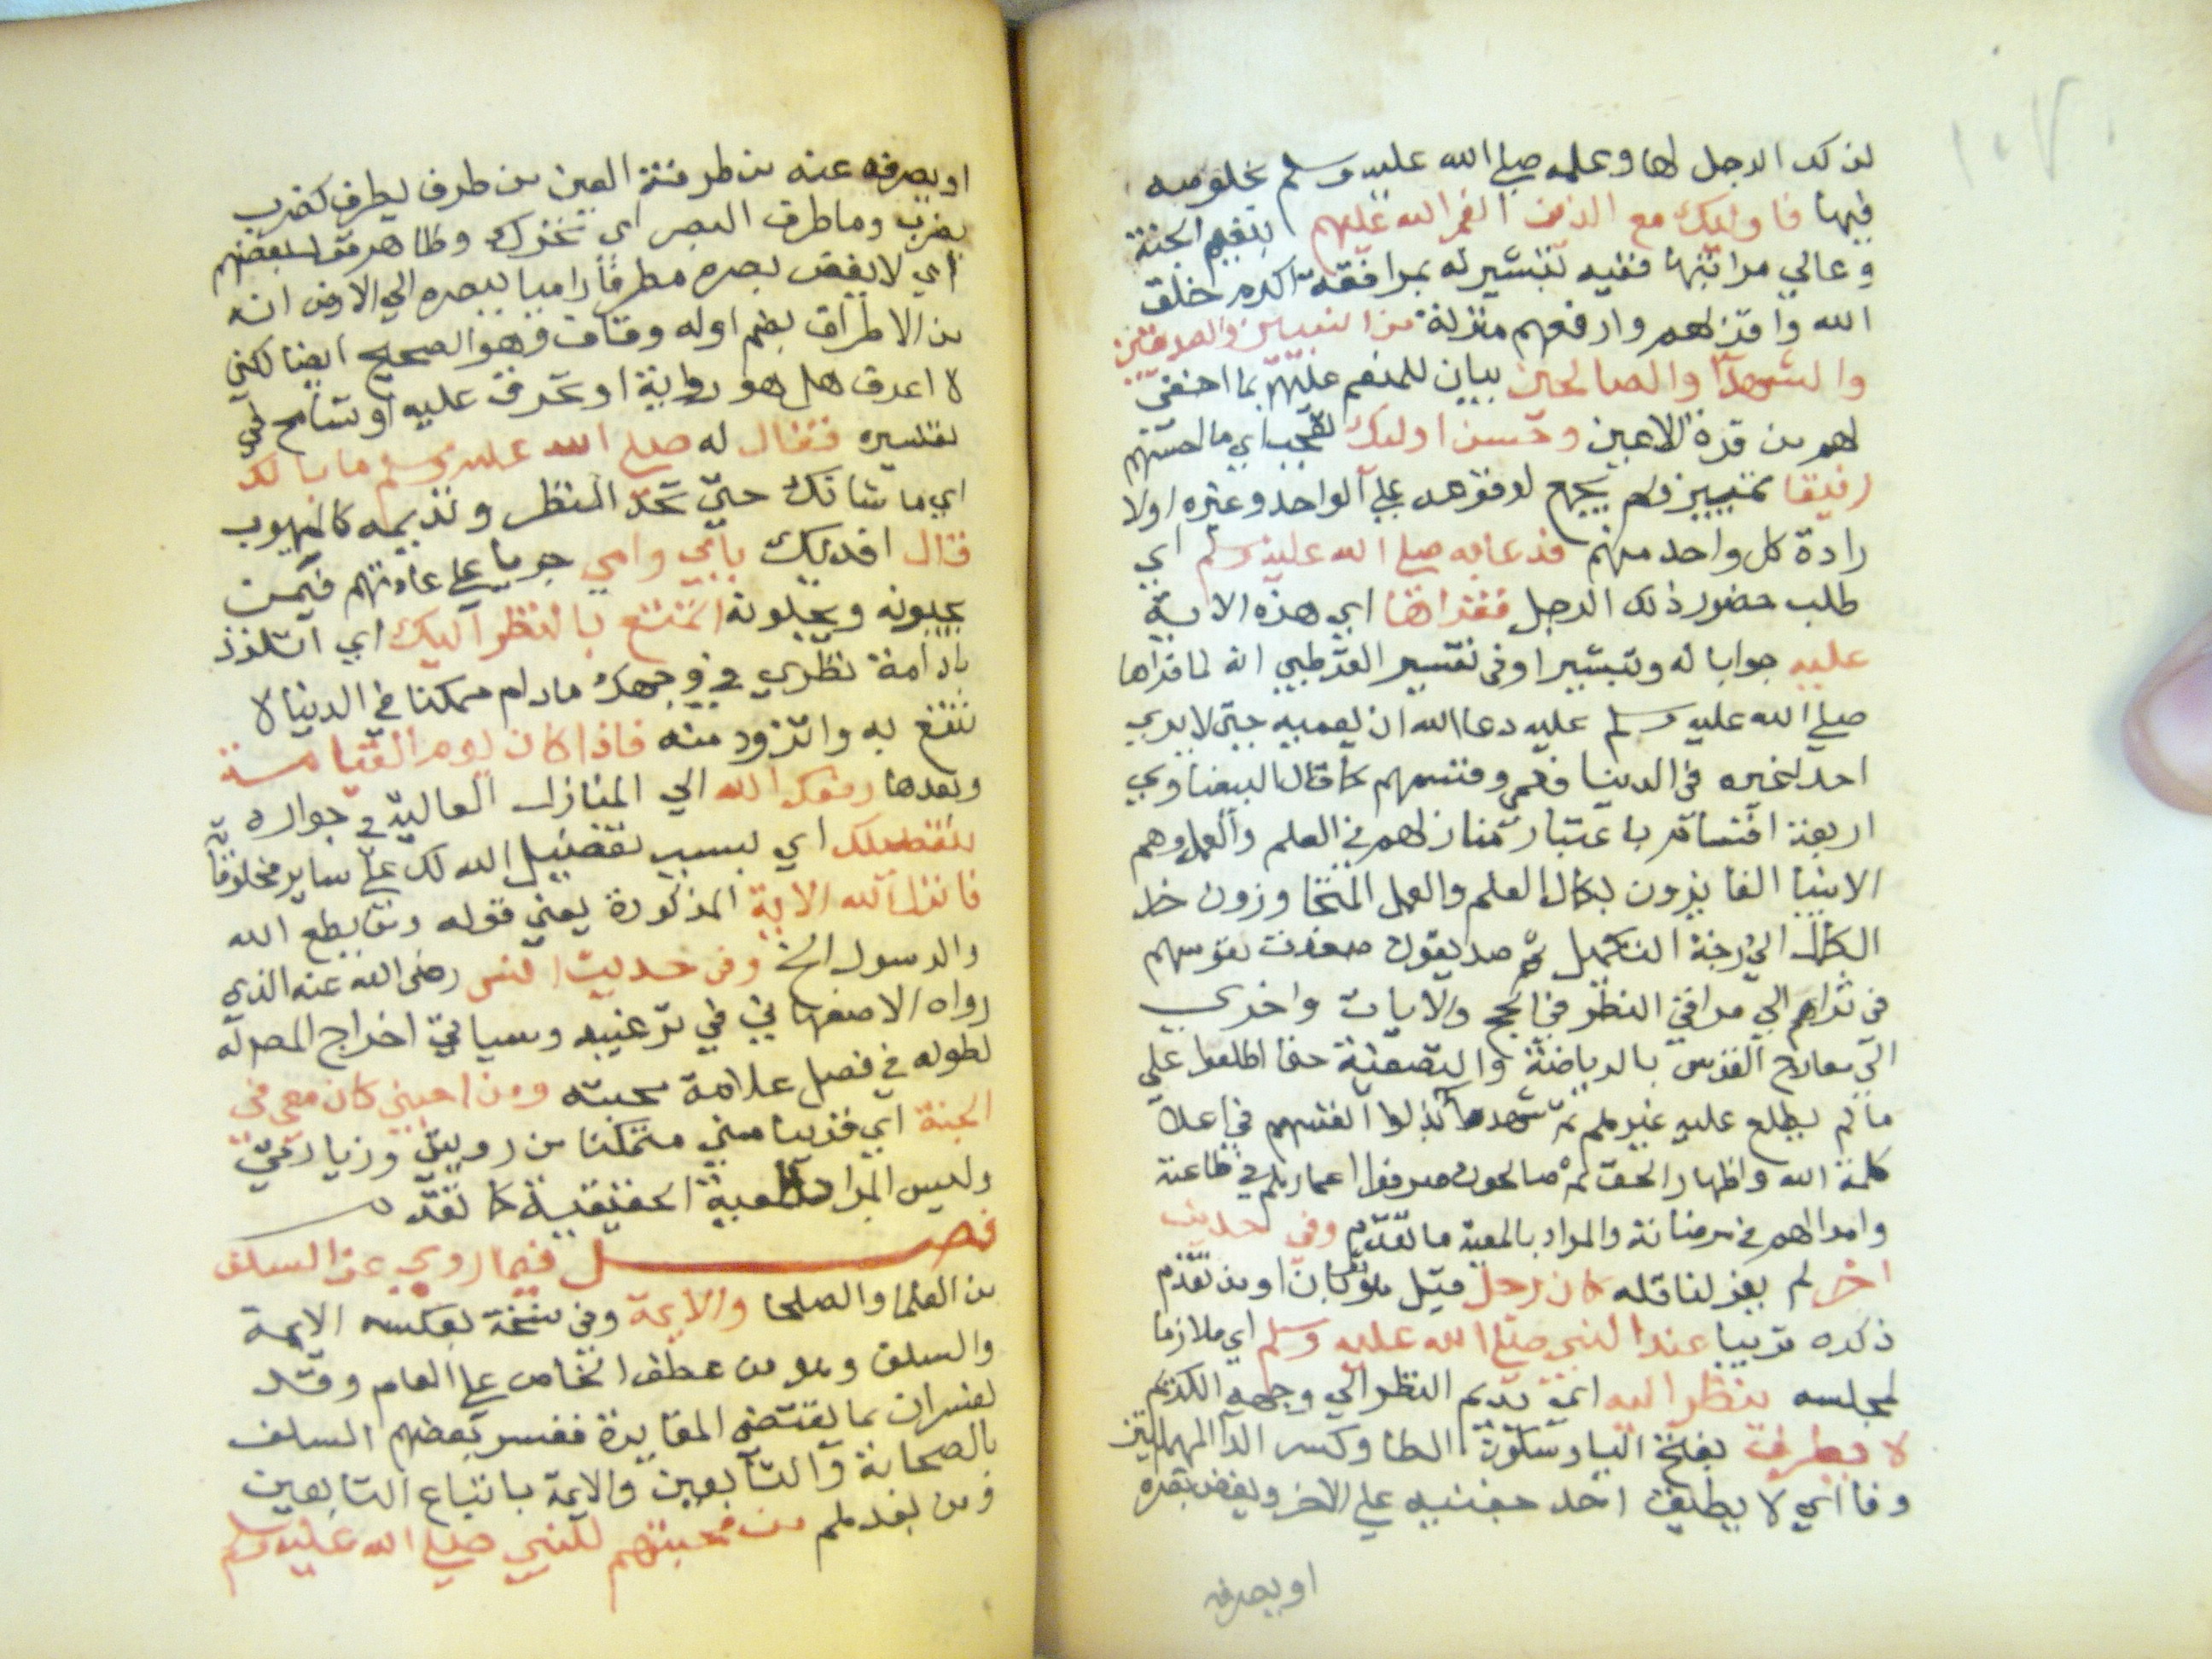 لذلك الرجل لها وعلمه صلى الله عليه وسلم بخلوصه
فيها فاوليك مع الذين انعم الله عليهم بنعيم الجنة
وعالي مراتبها ففيه تبشير له بمرافقة اكرم خلق
الله واقربهم وارفعهم منزلة من النبيين والصديقين
والشهدآ والصالحين بيان للمنعم عليهم بما اخفي
لهم من قرة الاعين وحسن اوليك تعجب اي ما احسنهم
رفيقا تمييز ولم يجمع لوقوعه علي الواحد وغيره اولا
رادة كل واحد منهم فدعا به صلى الله عليه وسلم اي
طلب حضور ذلك الرجل فقراها اي هذه الاية
عليه جوابا له وتبشيرا وفي تفسير القرطبي انه لما قراها
صلى الله عليه وسلم عليه دعا الله ان يعميه حتى لا يري
احد غيره في الدنيا فعمي وقسمهم كما قال البيضاوي
اربعة اقسام باعتبار منازلهم في العلم والعمل وهم
الانبيا الفايزون بكمال العلم والعمل المتجاوزون حد
الكمال الي درجة التكميل ثم صديقون صعدت نفوسهم
في تراهم الي مراقي النظر في الحجج والايات واخري
الي معارج القدس بالرياضة والتصفية حتى اطلعوا علي
ما لم يطلع عليه غيرهم ثم شهدا بذلوا انفسهم في اعلا
كلمة الله واظهار الحق ثم صالحون صرفوا اعمارهم في طاعته
واموالهم في مرضاته والمراد بالمعية ما تقدم وفي حديث
اخر لم يعز لناقله كان رجل قيل هو ثوبان او من تقدم
ذكره قريبا عند النبي صلى الله عليه وسلم اي ملازما
لمجلسه ينظر اليه اي يديم النظر الي وجهه الكريم
لا يطرف بفتح اليا وسكون الطا وكسر الرآ المهملتين
وفا اي لا يطبق احد جفنيه علي الاخر ويغض بصره
او يصرفه
او يصرفه عنه من طرفة العين من طرف يطرف كضرب
يضرب وما طرف البصر اي تحرك وظاهر قول بعضهم
اي لا يغض بصره مطرقا راميا ببصره الي الارض انه
من الاطراق بضم اوله وقاف وهو الصحيح ايضا لكني
لا اعرف هل هو رواية او تحرف عليه او تسامح في
تفسيره فقال له صلى الله عليه وسلم ما بالك
اي ما شانك حتى تحد النظر وتديمه كالمهيوب
قال افديك بابي وامي جريا علي عادتهم فيمن
يحبونه ويجلونه اتمتع بالنظر اليك اي اتلذذ
بادامة نظري في وجهك مادام ممكنا في الدنيا لا
نتفع به واتزود منه فاذا كان يوم القيامة
وبعدها رفعك الله الي المنازل العالية في جواره
بتفضيلك اي بسبب تفضيل الله لك علي ساير مخلوقاته
فانزل الله الاية المذكورة يعني قوله ومن يطع الله
والرسول الخ وفي حديث انس رضى الله عنه الذي
رواه الاصفهاني في ترغيبه وسياتي اخراج المص له
بطوله في فصل علامة محبته ومن احبني كان معي في
الجنة اي قريبا مني متمكنا من رويتي وزيارتي
وليس المراد المعية الحقيقية كما تقدم
فصـــــل فيما روي عن السلف
من العلما والصلحا والايمة وفي نسخة بعكسه الايمة
والسلف وهو من عطف الخاص علي العام وقد
يفسران بما يقتضي المغايرة ففسر بعضهم السلف
بالصحابة والتابعين والايمة باتباع التابعين
ومن بعدهم من محبتهم للنبي صلى الله عليه وسلم